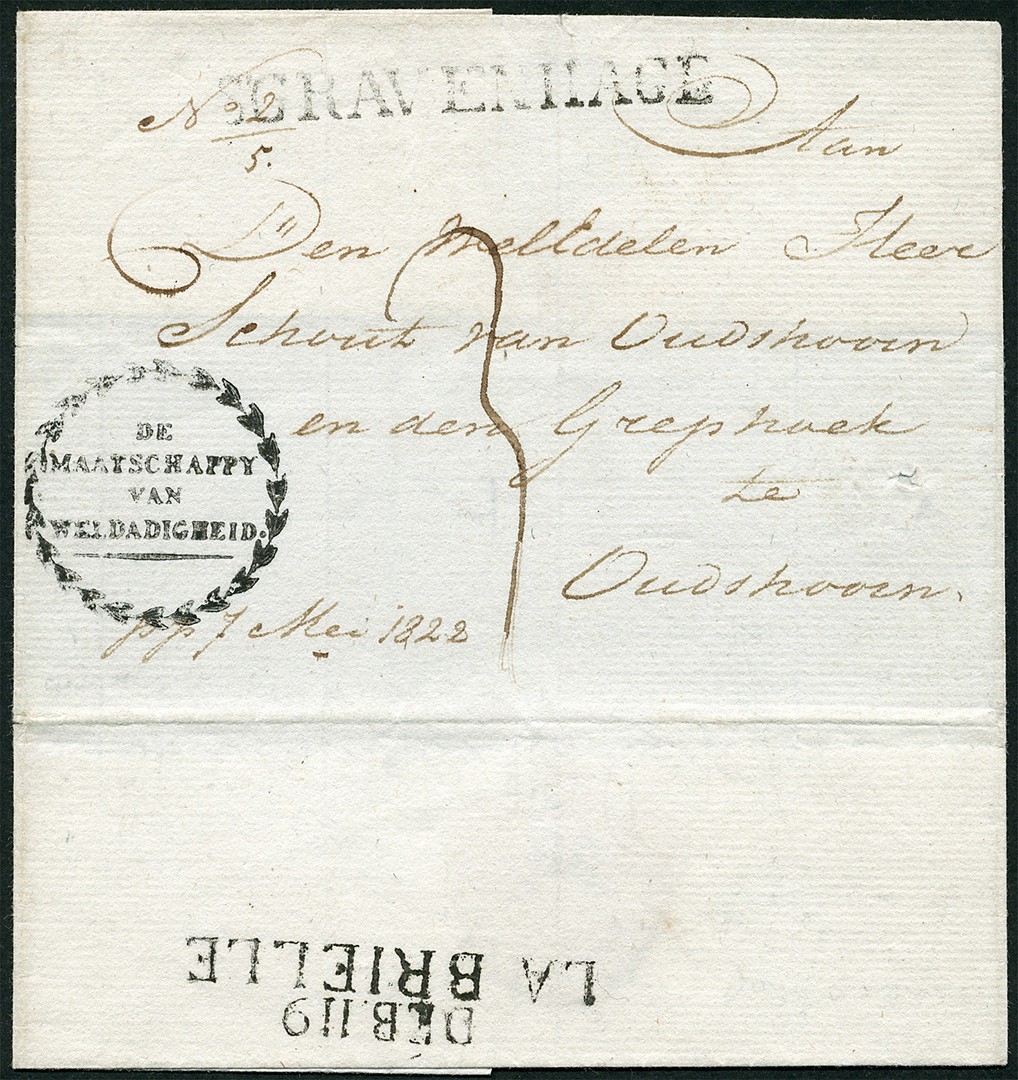 SGRAVENHAGE
No 2
5.
Aan
Den WelEdelen Heer
Schout van Oudshoorn
en den Gnephoek
te
Oudshoorn.
3
DE
MAATSCHAPPY
VAN
WELDADIGHEID.
pp 7 Mei 1822
DEB. 119
LA BRIELLE